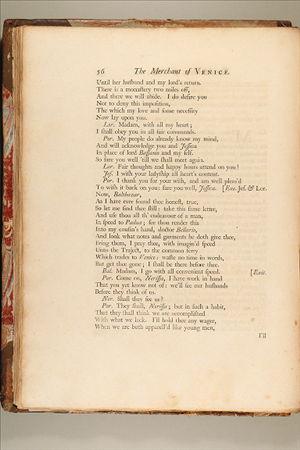 56 The Merchant of VENICE.
Until her husband and my lord's return.
There is a monastery two miles off,
And there we will abide. I do desire you
Not to deny this imposition,
The which my love and some necessity
Now lay upon you.
Lor. Madam, with all my heart;
I shall obey you in all fair commands.
Por. My people do already know my mind,
And will acknowledge you and Jessica
In place of lord Bassanio and my self.
So fare you well 'till we shall meet again.
Lor. Fair thoughts and happy hours attend on you!
Jes. I wish your ladyship all heart's content.
Por. I thank you for your wish, and am well pleas'd
To wish it back on you: fare you well, Jessica. [Exe. Jes. & Lor.
Now, Balthazar,
As I have ever found thee honest, true,
So let me find thee still: take this same letter,
And use thou all th' endeavour of a man,
In speed to Padua; see thou render this
Into my cousin's hand, doctor Bellario,
And look what notes and garments he doth give thee,
Bring them, I pray thee, with imagin'd speed
Unto the Traject, to the common ferry
Which trades to Venice: waste no time in words,
But get thee gone; I shall be there before thee.
Bal. Madam, I go with all convenient speed. [Exit.
Por. Come on, Nerissa, I have work in hand
That you yet know not of: we'll see our husbands
Before they think of us.
Ner. Shall they see us?
Por. They shall, Nerissa; but in such a habit,
That they shall think we are accomplished
With what we lack. I'll hold thee any wager,
When we are both apparell'd like young men,
I'll